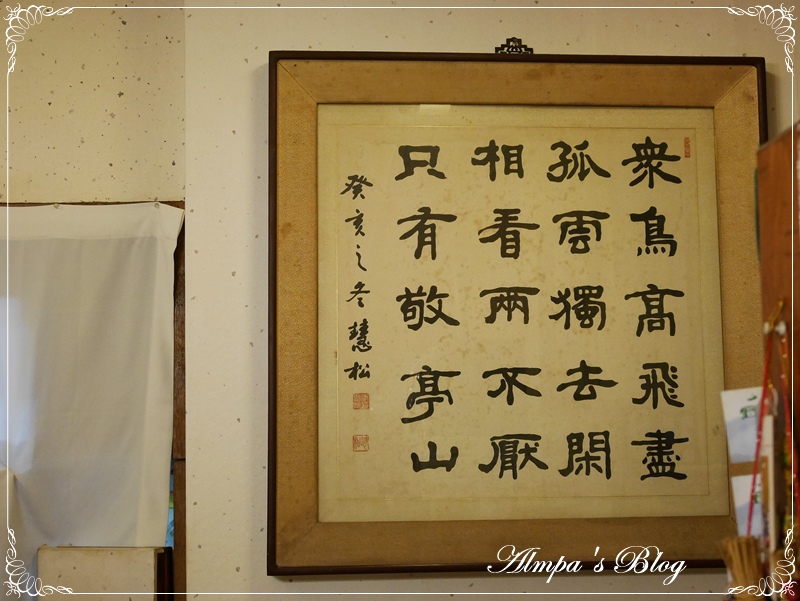 衆鳥高飛盡
孤雲獨去閑
相看兩不厭
只有敬亭山
癸亥之冬慧松
Almpa's Blog